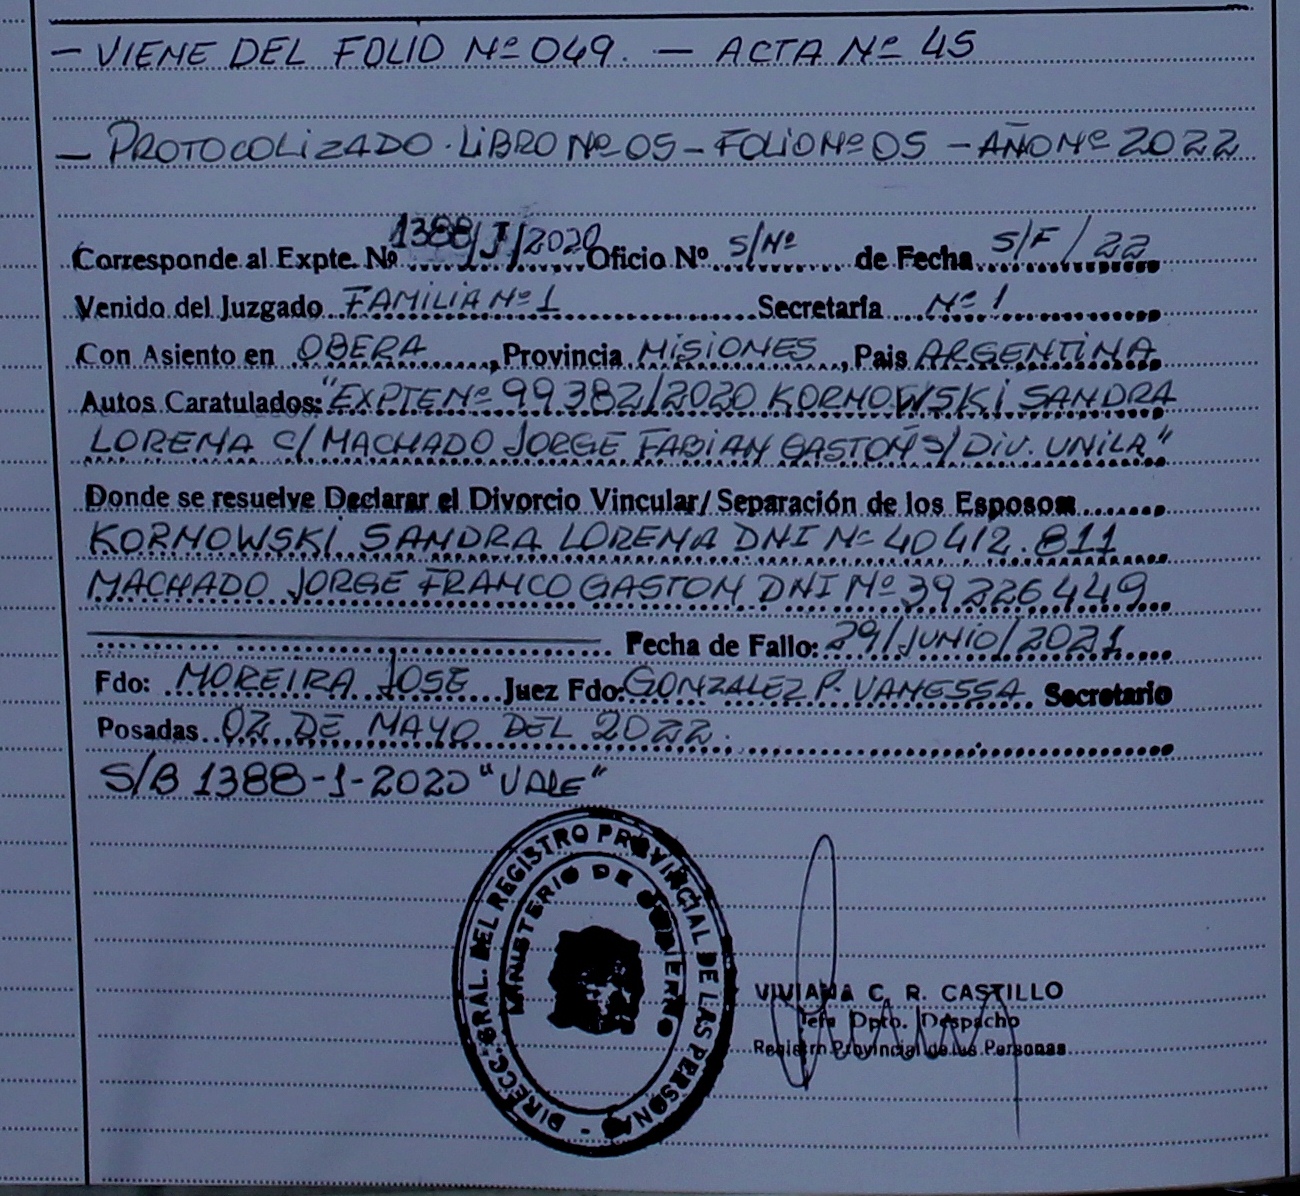 - VIENE DEL FOLIO Nº 049. - ACTA Nº 45
- PROTOCOLIZADO. LIBRO Nº 05 - FOLIO Nº 05 - AÑO Nº 2022
Corresponde al Expte. Nº 1388/J/2020 Oficio Nº S/Nº de Fecha S/F/22
Venido del Juzgado FAMILIA Nº 1 Secretaría Nº 1
Con Asiento en OBERA, Provincia MISIONES, Pais ARGENTINA
Autos Caratulados: "EXPTE Nº 99382/2020 KORNOWSKI SANDRA
LORENA C/ MACHADO JORGE FABIAN GASTON S/ DIV. UNILA"
Donde se resuelve Declarar el Divorcio Vincular/ Separación de los Esposos
KORNOWSKI SANDRA LORENA DNI Nº 40412.811
MACHADO JORGE FRANCO GASTON DNI Nº 39226449
Fecha de Fallo: 29/JUNIO/2021
Fdo: MOREIRA JOSE Juez Fdo: GONZALEZ P. VANESSA Secretario
Posadas 02 DE MAYO DEL 2022.
S/B 1388-1-2020 "VALE"
DIRECC. GRAL. DEL REGISTRO PROVINCIAL DE LAS PERSONAS -
MINISTERIO DE GOBIERNO
VIVIANA C. R. CASTILLO
Jefa Dpto. Despacho
Registro Provincial de las Personas